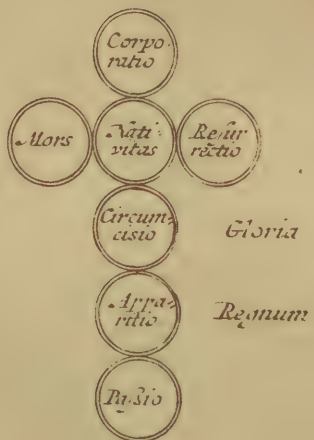 Corpo-
ratio
Mors
Nati-
vitas
Resur
rectio
Circum-
cisio
Gloria
Appa-
ritio
Regnum
Passio